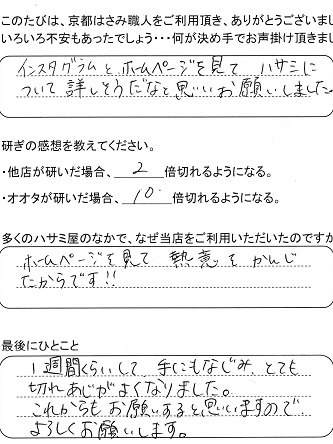 このたびは、京都はさみ職人をご利用頂き、ありがとうございまし
いろいろ不安もあったでしょう・・・何が決め手でお声掛け頂きまし
インスタグラムとホームページを見て ハサミに
ついて詳しそうだなと思いお願いしました。
研ぎの感想を教えてください。
・他店が研いだ場合、 2 倍切れるようになる。
・オオタが研いだ場合、 10 倍切れるようになる。
多くのハサミ屋のなかで、なぜ当店をご利用いただいたのですか
ホームページを見て 熱意をかんじ
たからです!!
最後にひとこと
1週間くらいして、手にもなじみ、とても
切れあじがよくなりました。
これからもお願いすると思いますので、
よろしくお願いします。